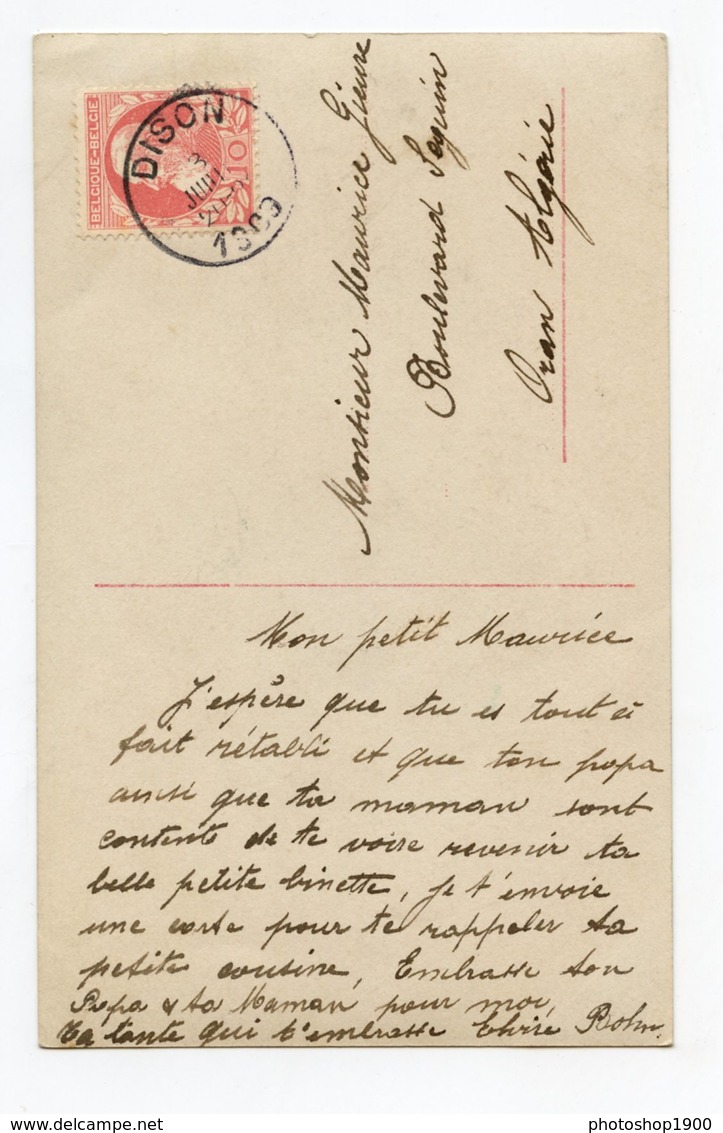 BELGIQUE-BELGIE
10
DISON
3
JUIL
1909
Monsieur Maurice
Boulevard Seguin
Oran Algérie
Mon petit Maurice
J'espère que tu es tout à
fait rétabli et que ton papa
ainsi que ta maman sont
contents de te voire revenir ta
belle petite binette, je t'envoie
une carte pour te rappeler ta
petite cousine, Embrasse ton
Papa & ta Maman pour moi,
Ta tante qui t'embrasse Elvire Bohn.
photoshop1900